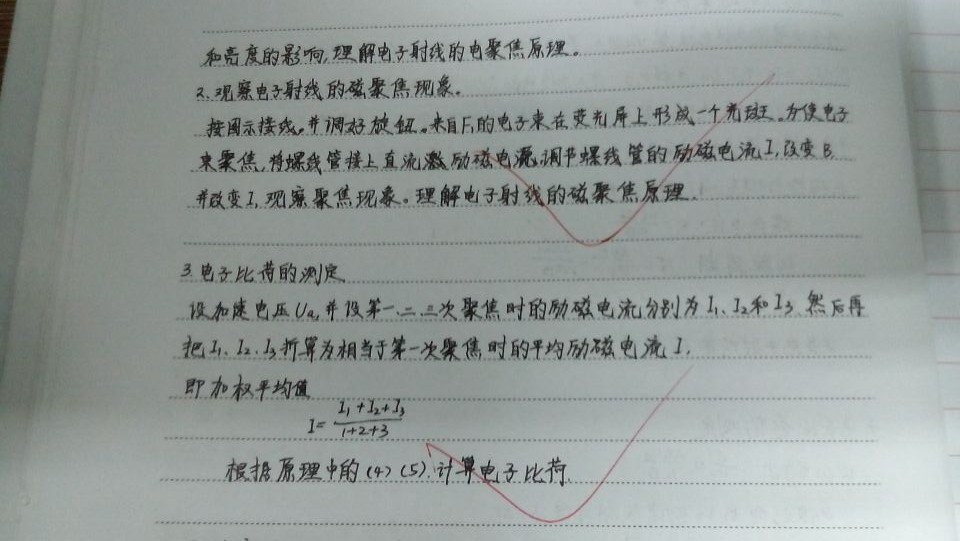 和亮度的影响,理解电子射线的电聚焦原理。
2.观察电子射线的磁聚焦现象。
按图示接线,并调好旋钮。来自F,的电子束在荧光屏上形成一个光斑。为使电子
束聚焦,将螺线管接上直流激励磁电源,调节螺线管的励磁电流I,改变B,
并改变I,观察聚焦现象。理解电子射线的磁聚焦原理.
3.电子比荷的测定
设加速电压Ua,并设第一、二、三次聚焦时的励磁电流分别为I₁、I₂和I₃.然后再
把I₁、I₂、I₃折算为相当于第一次聚焦时的平均励磁电流I,
即加权平均值
I= I₁+I₂+I₃ / 1+2+3
根据原理中的(4)(5).计算电子比荷.